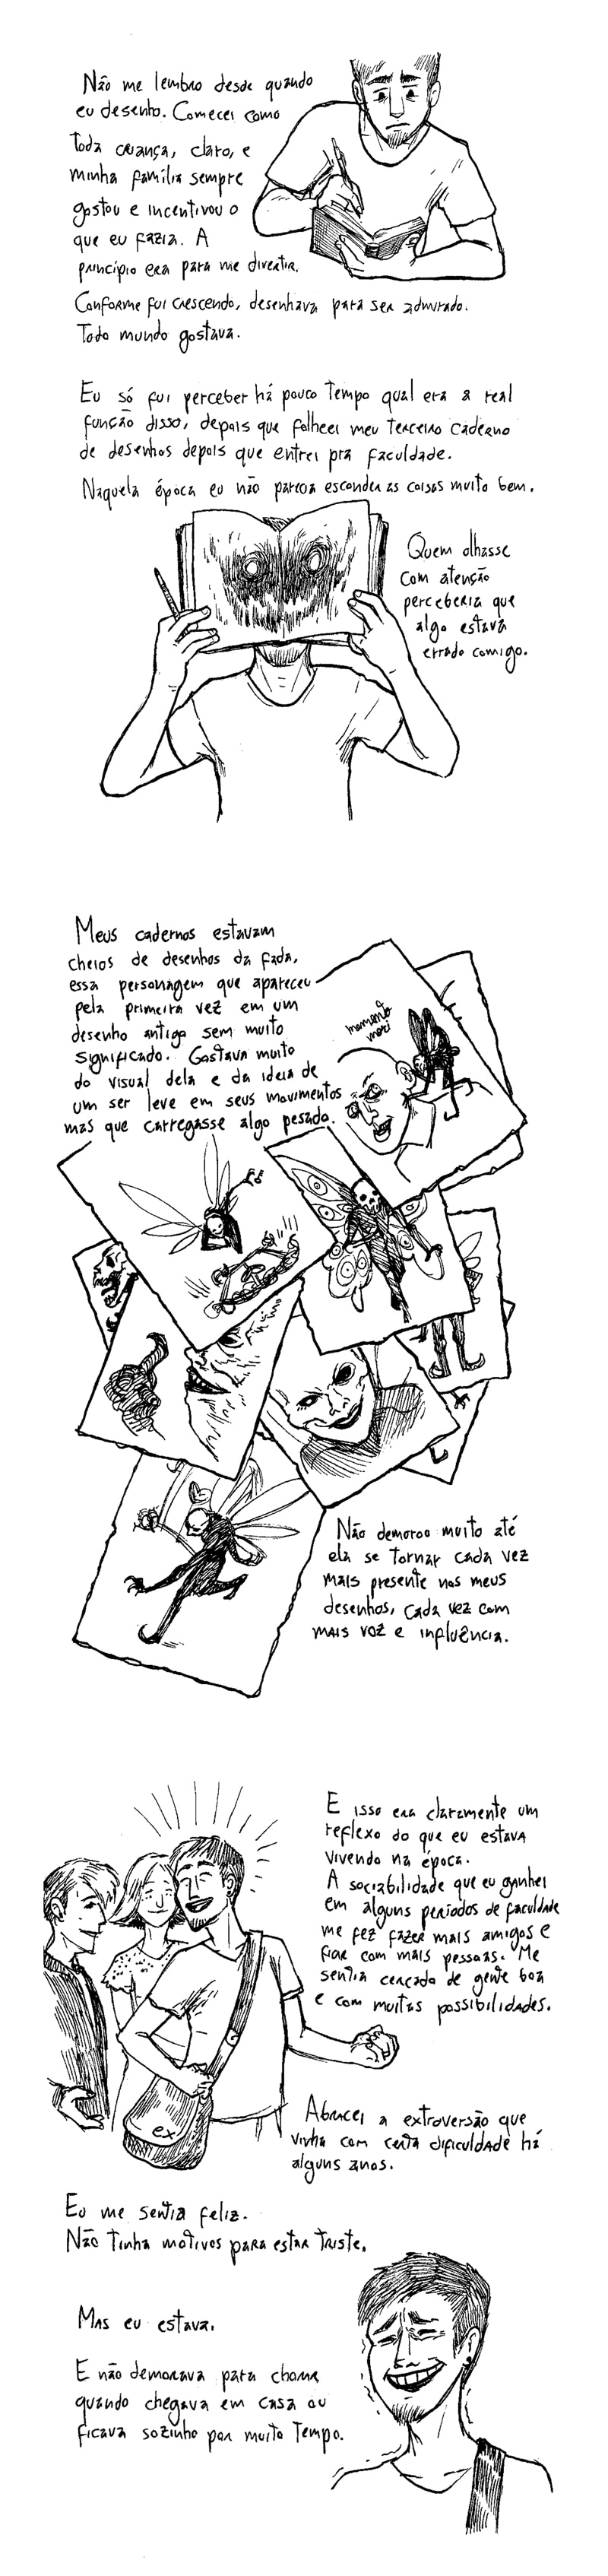 Não me lembro desde quando
eu desenho. Comecei como
toda criança, claro, e
minha família sempre
gostou e incentivou o
que eu fazia. A
princípio era para me divertir.
Conforme fui crescendo, desenhava para ser admirado.
Todo mundo gostava.
Eu só fui perceber há pouco tempo qual era a real
função disso, depois que folheei meu terceiro caderno
de desenhos depois que entrei pra faculdade.
Naquela época eu não parecia esconder as coisas muito bem.
Quem olhasse
com atenção
perceberia que
algo estava
errado comigo.
Meus cadernos estavam
cheios de desenhos da fada,
essa personagem que apareceu
pela primeira vez em um
desenho antigo sem muito
significado. Gostava muito
do visual dela e da ideia de
um ser leve em seus movimentos
mas que carregasse algo pesado.
momento
mori
Não demorou muito até
ela se tornar cada vez
mais presente nos meus
desenhos, cada vez com
mais voz e influência.
E isso era claramente um
reflexo do que eu estava
vivendo na época.
A sociabilidade que eu ganhei
em alguns períodos de faculdade
me fez fazer mais amigos e
ficar com mais pessoas. Me
sentia cercado de gente boa
e com muitas possibilidades.
ex
Abracei a extroversão que
vinha com certa dificuldade há
alguns anos.
Eu me sentia feliz.
Não tinha motivos para estar triste.
Mas eu estava.
E não demorava para chorar
quando chegava em casa ou
ficava sozinho por muito tempo.